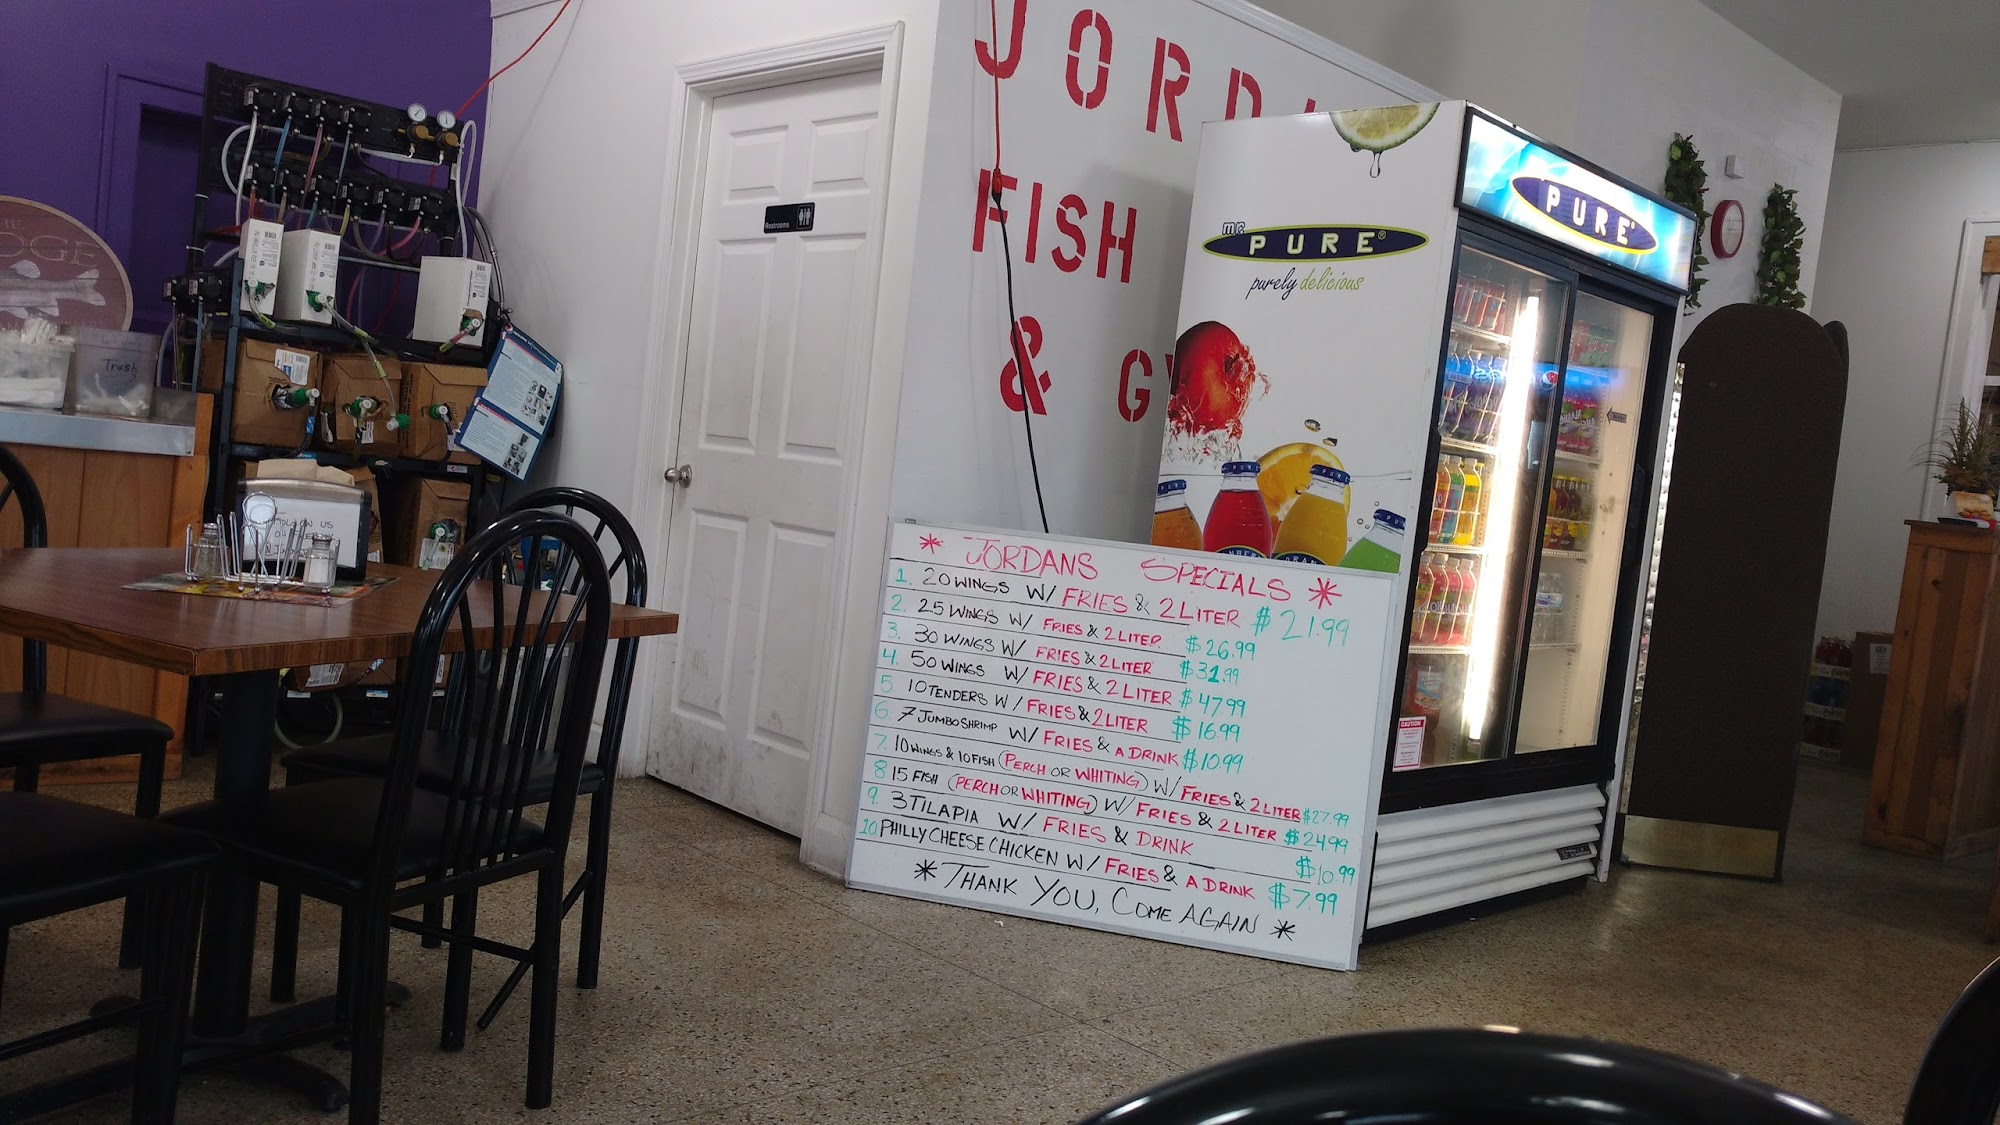 JORDA
FISH
& GY
Restrooms
THE
DGE
Trash
FOLLOW US
mr.
PURE®
purely delicious
PURE
* JORDANS SPECIALS *
1. 20 WINGS W/ FRIES & 2 LITER $21.99
2. 25 WINGS W/ FRIES & 2 LITER $26.99
3. 30 WINGS W/ FRIES & 2 LITER $31.99
4. 50 WINGS W/ FRIES & 2 LITER $47.99
5 10 TENDERS W/ FRIES & 2 LITER $16.99
6. 7 JUMBO SHRIMP W/ FRIES & A DRINK $10.99
7. 10 WINGS & 10 FISH (PERCH OR WHITING) W/ FRIES & 2 LITER $27.99
8 15 FISH (PERCH OR WHITING) W/ FRIES & 2 LITER $24.99
9. 3 TILAPIA W/ FRIES & DRINK $10.99
10. PHILLY CHEESE CHICKEN W/ FRIES & A DRINK $7.99
* THANK YOU, COME AGAIN *
CAUTION